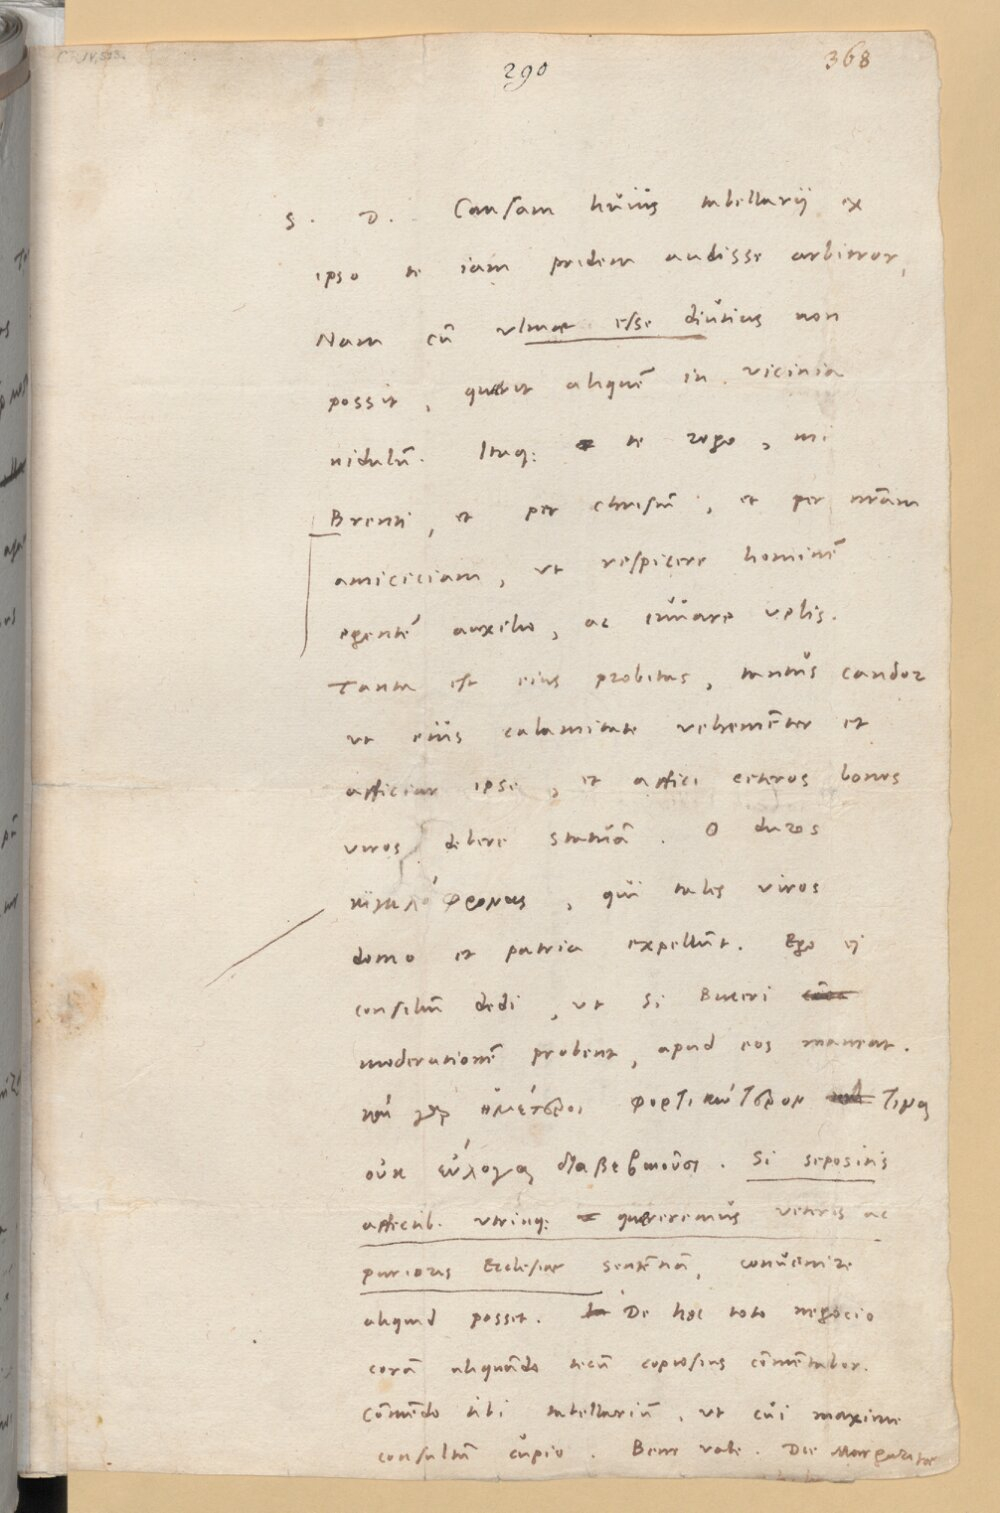 290
368
S. D. Causam huius tabellarij ex
ipso te iam pridem audisse arbitror,
Nam cū vlmae esse diutius non
possit, querit aliquē in vicinia
nidulū. Itaq: te rogo, mi
Brenti, et per christū, et per nr̄am
amiciciam, vt respicere hominē
egentē auxilio, ac iuuare velis.
Tanta est eius probitas, tantus candor
vt eius calamitate vehemēter et
afficiar ipse, et affici ceteros bonos
viros debere statuā. O duros
qui tales viros
domo et patria expellūt. Ego ej
consiliū dedi, vt si Buceri
moderationē probent, apud eos maneat.
καὶ γὰρ ἡμέτεροι φορτικώτερον τινα
οὐκ εὐλόγως διαβεβαιοῦσι. Si sepositis
affectib. utrinq: quereremus veteris ac
purioris Ecclesiae sentētiā, conuenire
aliquid posset. De hoc toto negocio
corā aliquādo tecū copiosius cōmētabor.
Cōmēdo tibi tabellariū, vt cui maxime
consultū cupio. Bene vale. Die Margaritae